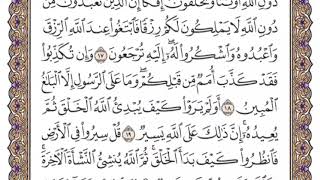 دُونِ ٱللَّهِ أَوْثَٰنًا وَتَخْلُقُونَ إِفْكًا إِنَّ ٱلَّذِينَ تَعْبُدُونَ مِن
دُونِ ٱللَّهِ لَا يَمْلِكُونَ لَكُمْ رِزْقًا فَٱبْتَغُوا۟ عِندَ ٱللَّهِ ٱلرِّزْقَ
وَٱعْبُدُوهُ وَٱشْكُرُوا۟ لَهُۥٓ إِلَيْهِ تُرْجَعُونَ ١٧ وَإِن تُكَذِّبُوا۟
فَقَدْ كَذَّبَ أُمَمٌ مِّن قَبْلِكُمْ وَمَا عَلَى ٱلرَّسُولِ إِلَّا ٱلْبَلَٰغُ
ٱلْمُبِينُ ١٨ أَوَلَمْ يَرَوْا۟ كَيْفَ يُبْدِئُ ٱللَّهُ ٱلْخَلْقَ ثُمَّ
يُعِيدُهُۥٓ إِنَّ ذَٰلِكَ عَلَى ٱللَّهِ يَسِيرٌ ١٩ قُلْ سِيرُوا۟ فِى ٱلْأَرْضِ
فَٱنظُرُوا۟ كَيْفَ بَدَأَ ٱلْخَلْقَ ثُمَّ ٱللَّهُ يُنشِئُ ٱلنَّشْأَةَ ٱلْءَاخِرَةَ